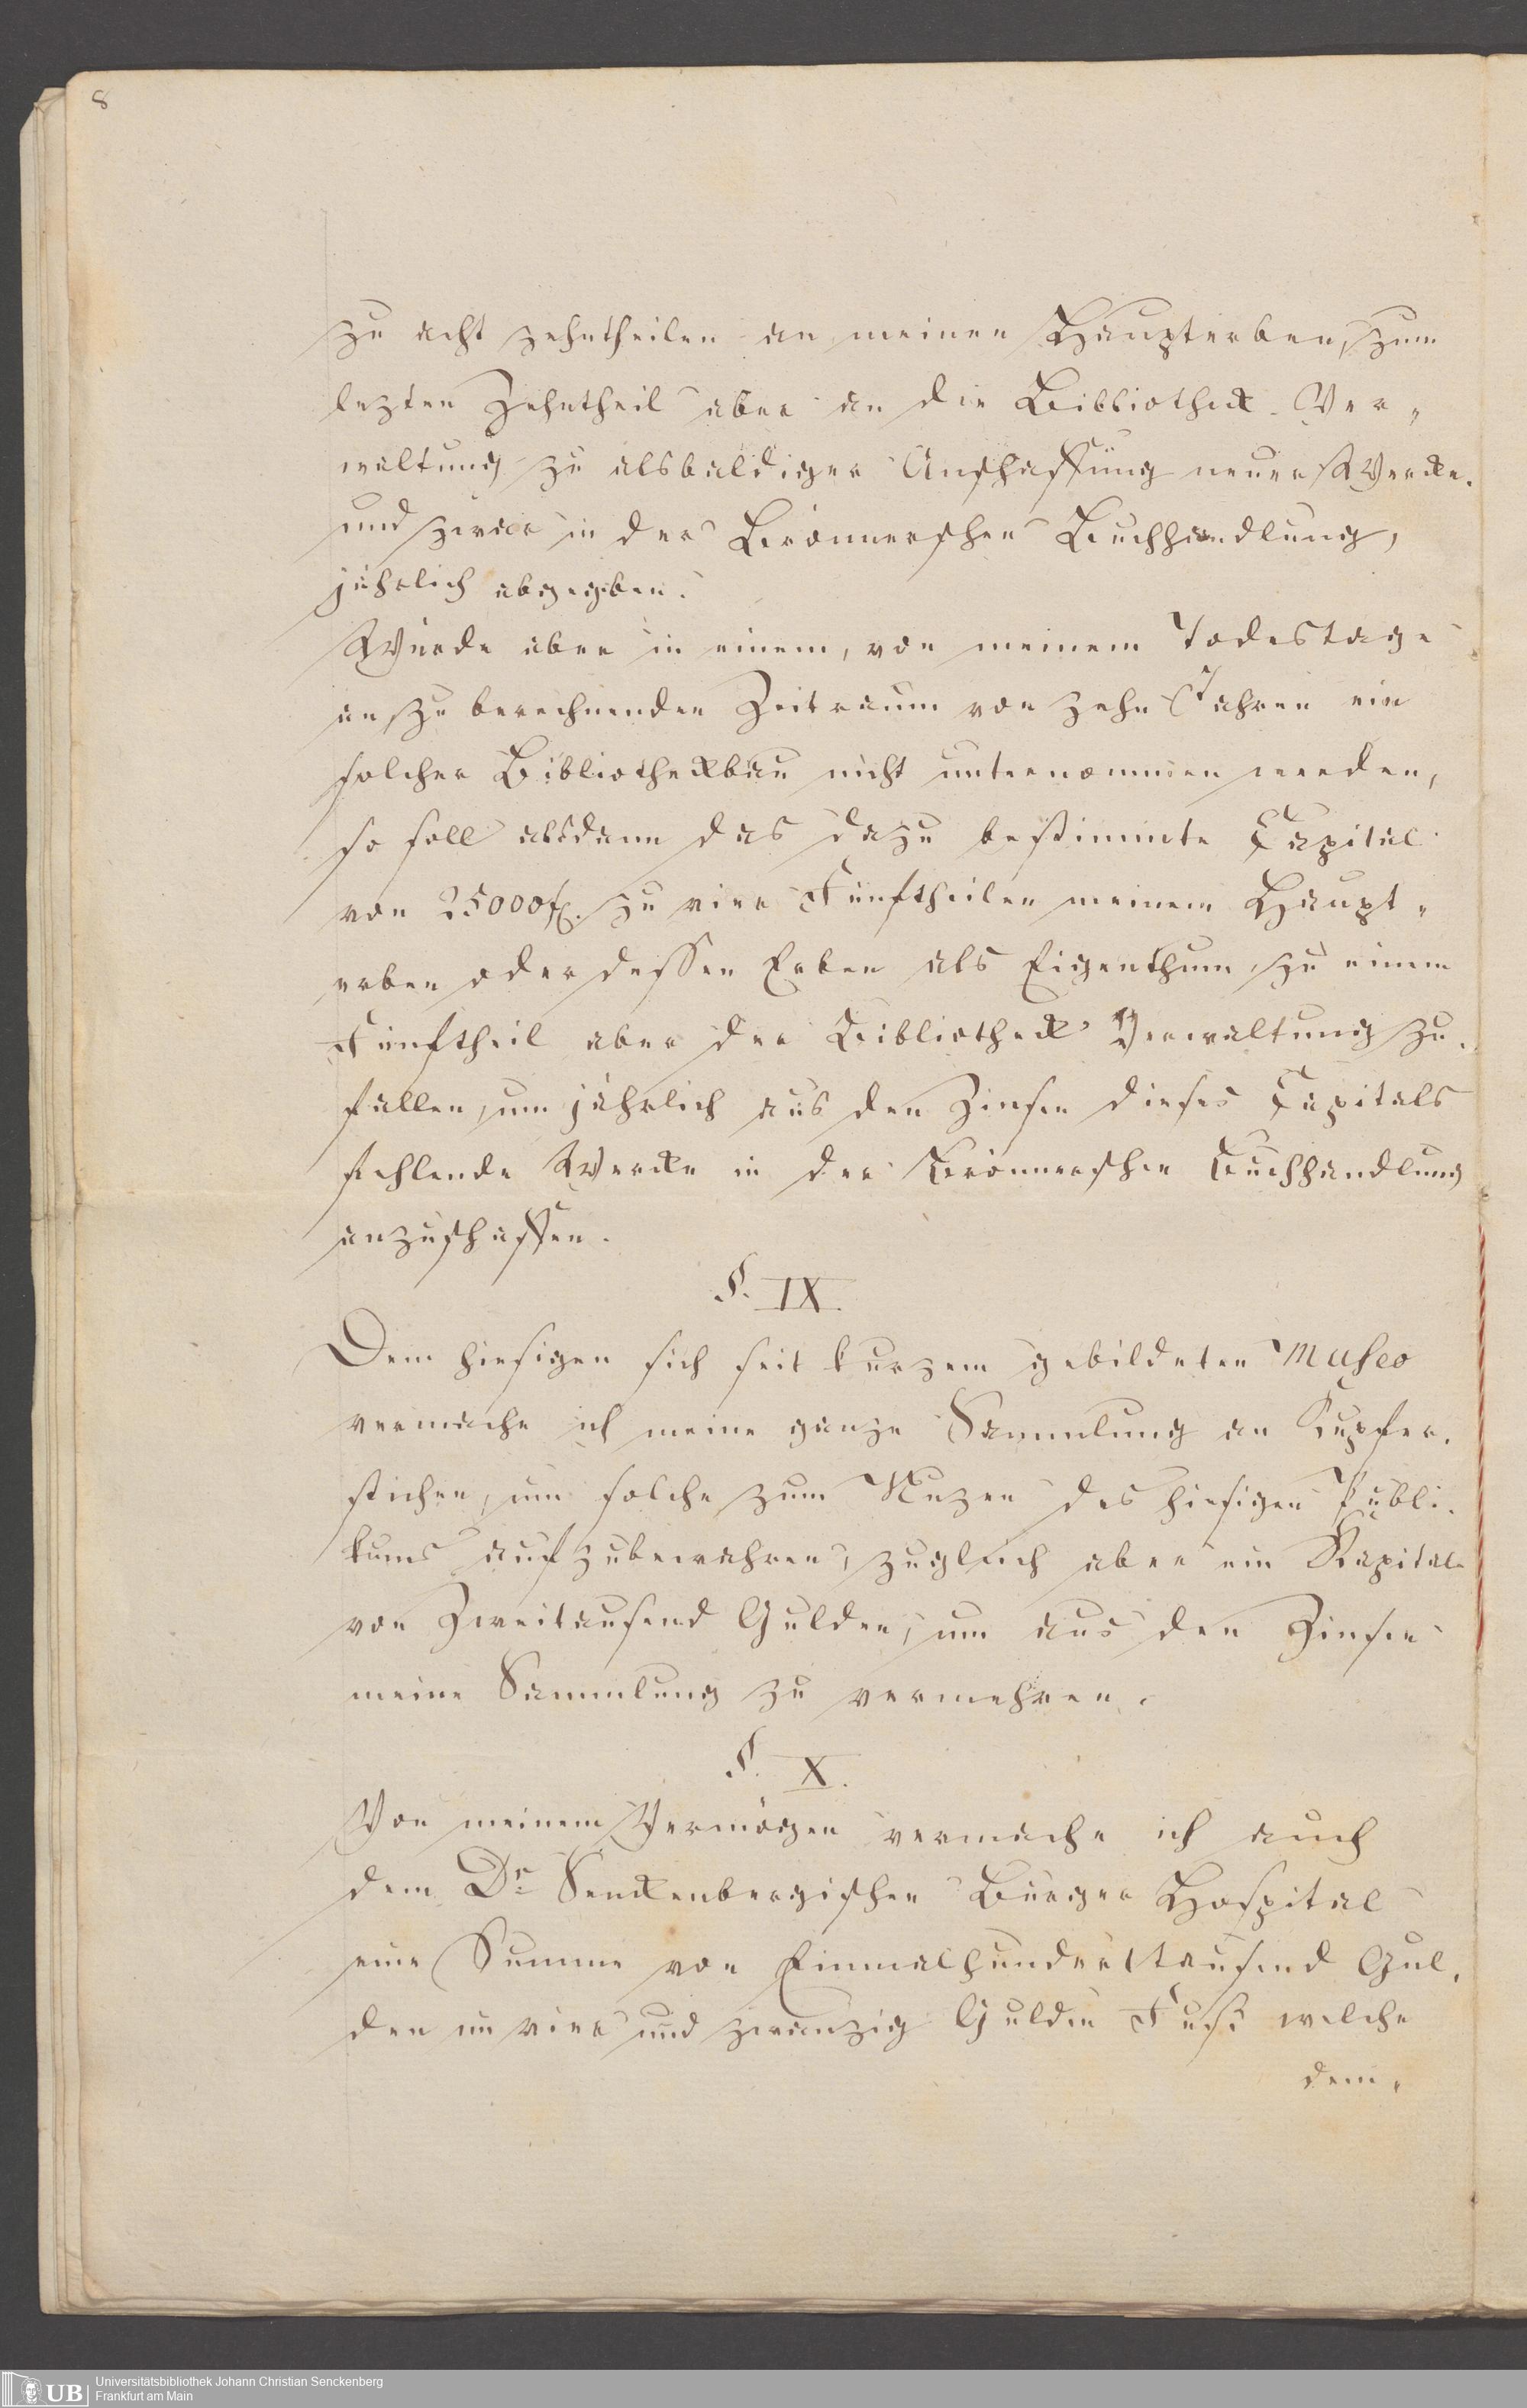 8
zu acht zehntheilen an meinen Haupterben, zum
lezten Zehntheil aber an die Bibliothek-Ver-
waltung zu alsbaldiger Anschaffung neuer Wercke.
und zwar in der Brönnerschen Buchhandlung,
jährlich abgegeben.
Würde aber in einem, von meinem Todestage
an zu berechnenden Zeitraum von zehn Jahren ein
solcher Bibliotheckbau nicht unternommen werden,
so soll alsdann das dazu bestimmte Capital
von 25000 fl. zu vier Fünftheilen meinem Haupt-
erben oder dessen Erben als Eigenthum, zu einem
Fünftheil aber der Bibliotheck Verwaltung zu-
fallen, um jährlich aus den Zinsen dieses Capitals
fehlende Wercke in der Brönnerschen Buchhandlung
anzuschaffen.
§. IX.
Dem hiesigen sich seit kurzem gebildeten Museo
vermache ich meine ganze Sammlung an Kupfer-
stichen, um solche zum Nuzen des hiesigen Publi-
kums aufzubewahren, zugleich aber ein Kapital
von Zweitausend Gulden, um aus den Zinsen
meine Sammlung zu vermehren.
§. X.
Von meinem Vermögen vermache ich auch
dem Dr Senckenbergischen Bürger Hospital
eine Summe von Einmalhunderttausend Gul-
den im vier und zwanzig Gulden Fuß welche
dem,
UB Universitätsbibliothek Johann Christian Senckenberg
Frankfurt am Main